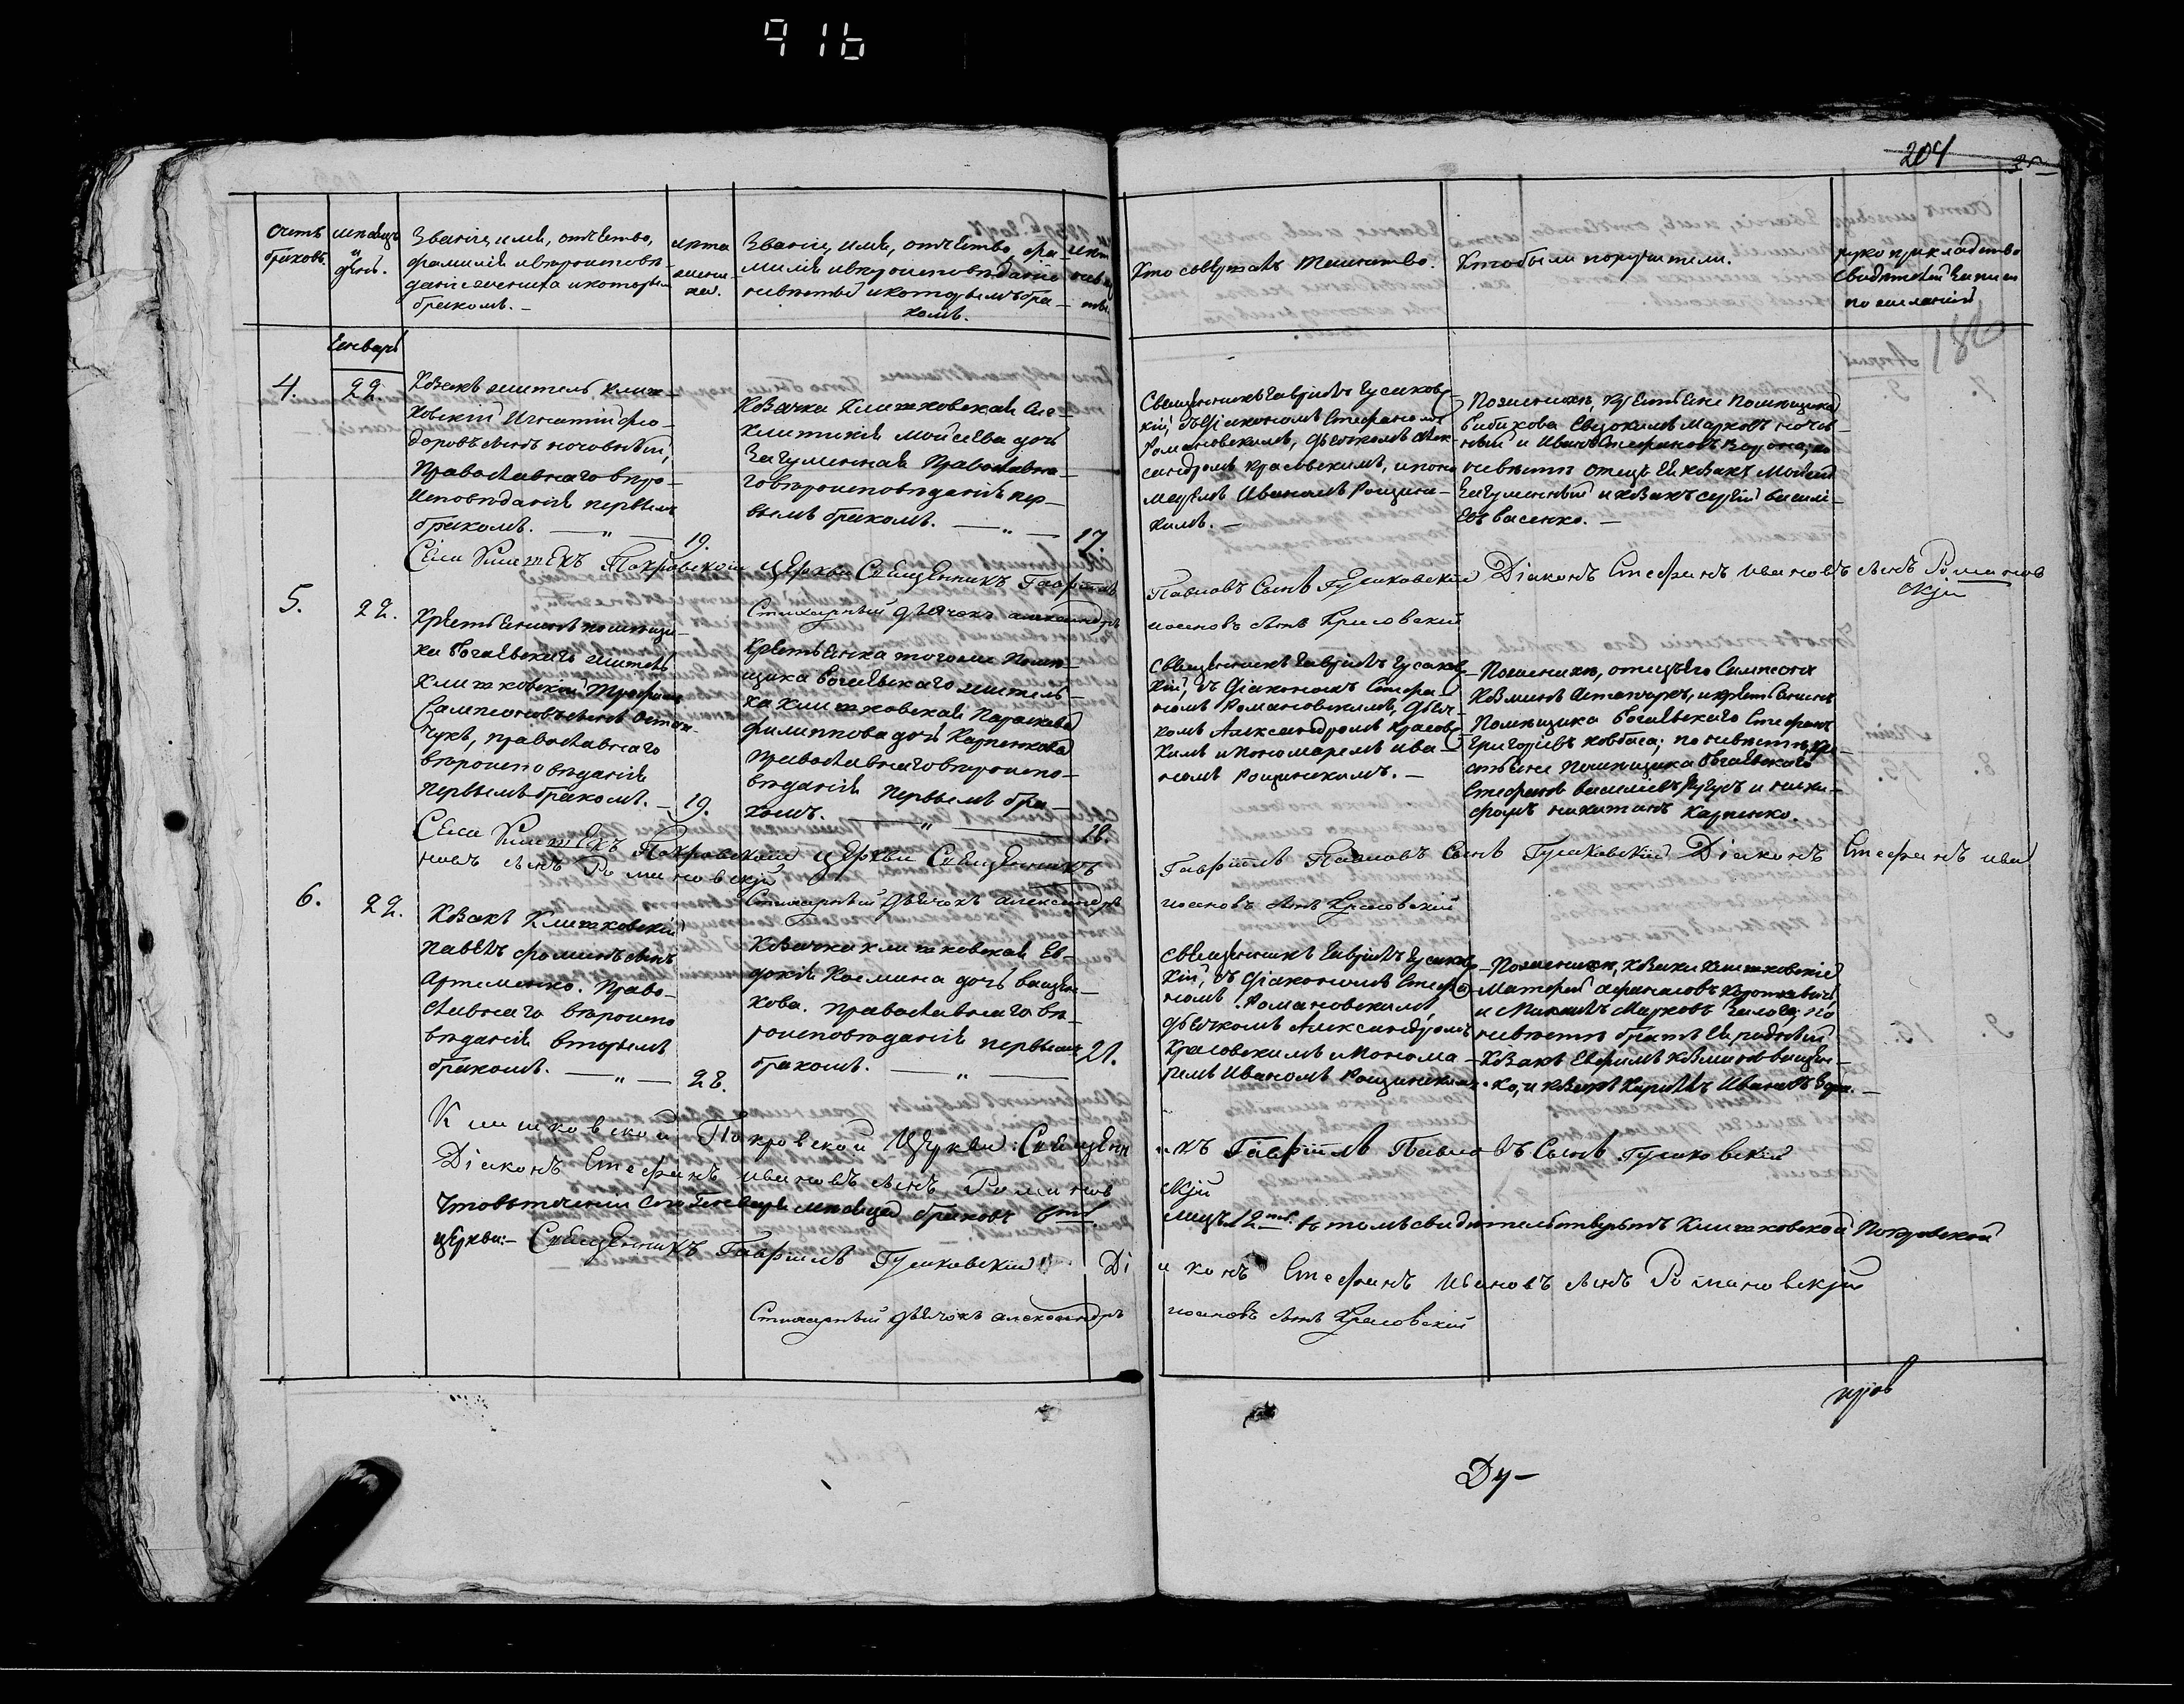 916
204
счетъ
браковъ.
месяцъ
и
день.
Званіе, имя, отчество,
фамилія и вѣроисповѣ-
даніе жениха и которымъ
бракомъ. -
лѣта
жени-
ха.
Званіе, имя, отчество, фа-
милія и вѣроисповѣданіе
невѣсты и которымъ бра-
комъ.
лѣта
невѣ-
сты.
Кто совершалъ таинство.
Кто были поручители.
рукоприкладство
свидѣтелей записи
по желанію
Генварь
4.
22.
Козакъ житель Клиш-
ковскій Игнатій Фео-
доровъ сынъ
Православнаго вѣро-
исповѣданія первымъ
бракомъ. — „ —
19.
Козачка Клишковская
Моисеева дочь
Загуменная Православна-
го вѣроисповѣданія пер-
вымъ бракомъ. — „ —
17.
Священникъ Гавріилъ Гусаков-
скій, съ Діакономъ Стефаномъ
Романовскимъ, дьячкомъ Алек-
сандромъ Красовскимъ, и поно-
маремъ Иваномъ Рощинс-
кимъ. -
По женихѣ, крестьяне Помѣщика
Бибикова Евдокимъ Марковъ
и Иванъ Стефановъ Ворона; по
невѣстѣ отецъ ея козакъ Моисей
Загуменный и козакъ Сергій Василі-
евъ Васенко. -
Села Клишекъ Покровской Церкви Священникъ Гавріилъ
Павловъ Сынъ Гусаковскій Діаконъ Стефанъ Ивановъ сынъ Романов
скій
Стихарный дьячокъ Александръ
Іосиповъ сынъ Красовскій
5.
22.
Крестьянинъ помѣщи-
ка Богаевскаго житель
Клишковскій Трофимъ
Сампсоновъ сынъ Остап-
чукъ, православнаго
вѣроисповѣданія
первымъ бракомъ. —
19.
Крестьянка того же Помѣ-
щика Богаевскаго житель-
ка Клишковская Параскева
Филиппова дочь Карпенкова
православнаго вѣроиспо-
вѣданія первымъ бра-
комъ. — „ —
18.
Священникъ Гавріилъ Гусаков-
скій, съ Діакономъ Стефа-
номъ Романовскимъ, дьяч-
комъ Александромъ Красов-
скимъ и пономаремъ Ива-
номъ Рощинскимъ. -
По женихѣ, отецъ его Сампсонъ
Козминъ Остапчукъ, и крестьянинъ
Помѣщика Богаевскаго Стефанъ
Григоріевъ Ковбаса; по невѣстѣ кре-
стьяне Помѣщика Богаевскаго
Стефанъ Василіевъ и Ники-
форъ Никитинъ Карпенко.
Села Клишекъ Покровской Церкви Священникъ
Гавріилъ Павловъ Сынъ Гусаковскій Діаконъ Стефанъ Ива
новъ сынъ Романовскій
Стихарный дьячокъ Александръ
Іосиповъ сынъ Красовскій
6.
22.
Козакъ Клишковскій
Павелъ Фоминъ сынъ
Артеменко. Право-
славнаго вѣроиспо
вѣданія вторымъ
бракомъ. — „ —
28.
Козачка Клишковская Ев-
докія Космина дочь Ващен-
кова. Православнаго вѣ-
роисповѣданія первымъ
бракомъ. — „ —
21.
Священникъ Гавріилъ Гусаков-
скій, съ Діакономъ Стефа-
номъ Романовскимъ
дьячкомъ Александромъ
Красовскимъ и Понома-
ремъ Иваномъ Рощинскимъ.
По женихѣ, козаки Клишковскіе
Матфей Афанасовъ
и Михаилъ Марковъ по
невѣстѣ братъ ея родный
козакъ Евфимъ Козминъ Ващен-
ко, и козакъ Кирилъ Ивановъ -
Клишковской Покровской Церкви: Священн
икъ Гавріилъ Павловъ Сынъ Гусаковскій
Діаконъ Стефанъ Ивановъ сынъ Романов
скій
Что въ теченіи сего Генваря месяца браковъ
лицъ 12ть. въ томъ свидѣтельствуютъ Клишковской Покровской
церкви:- Священникъ Гавріилъ Гусаковскій Ді
аконъ Стефанъ Ивановъ сынъ Романовскій
Стихарный дьячокъ Александръ
Іосиповъ сынъ Красовскій
Ду-